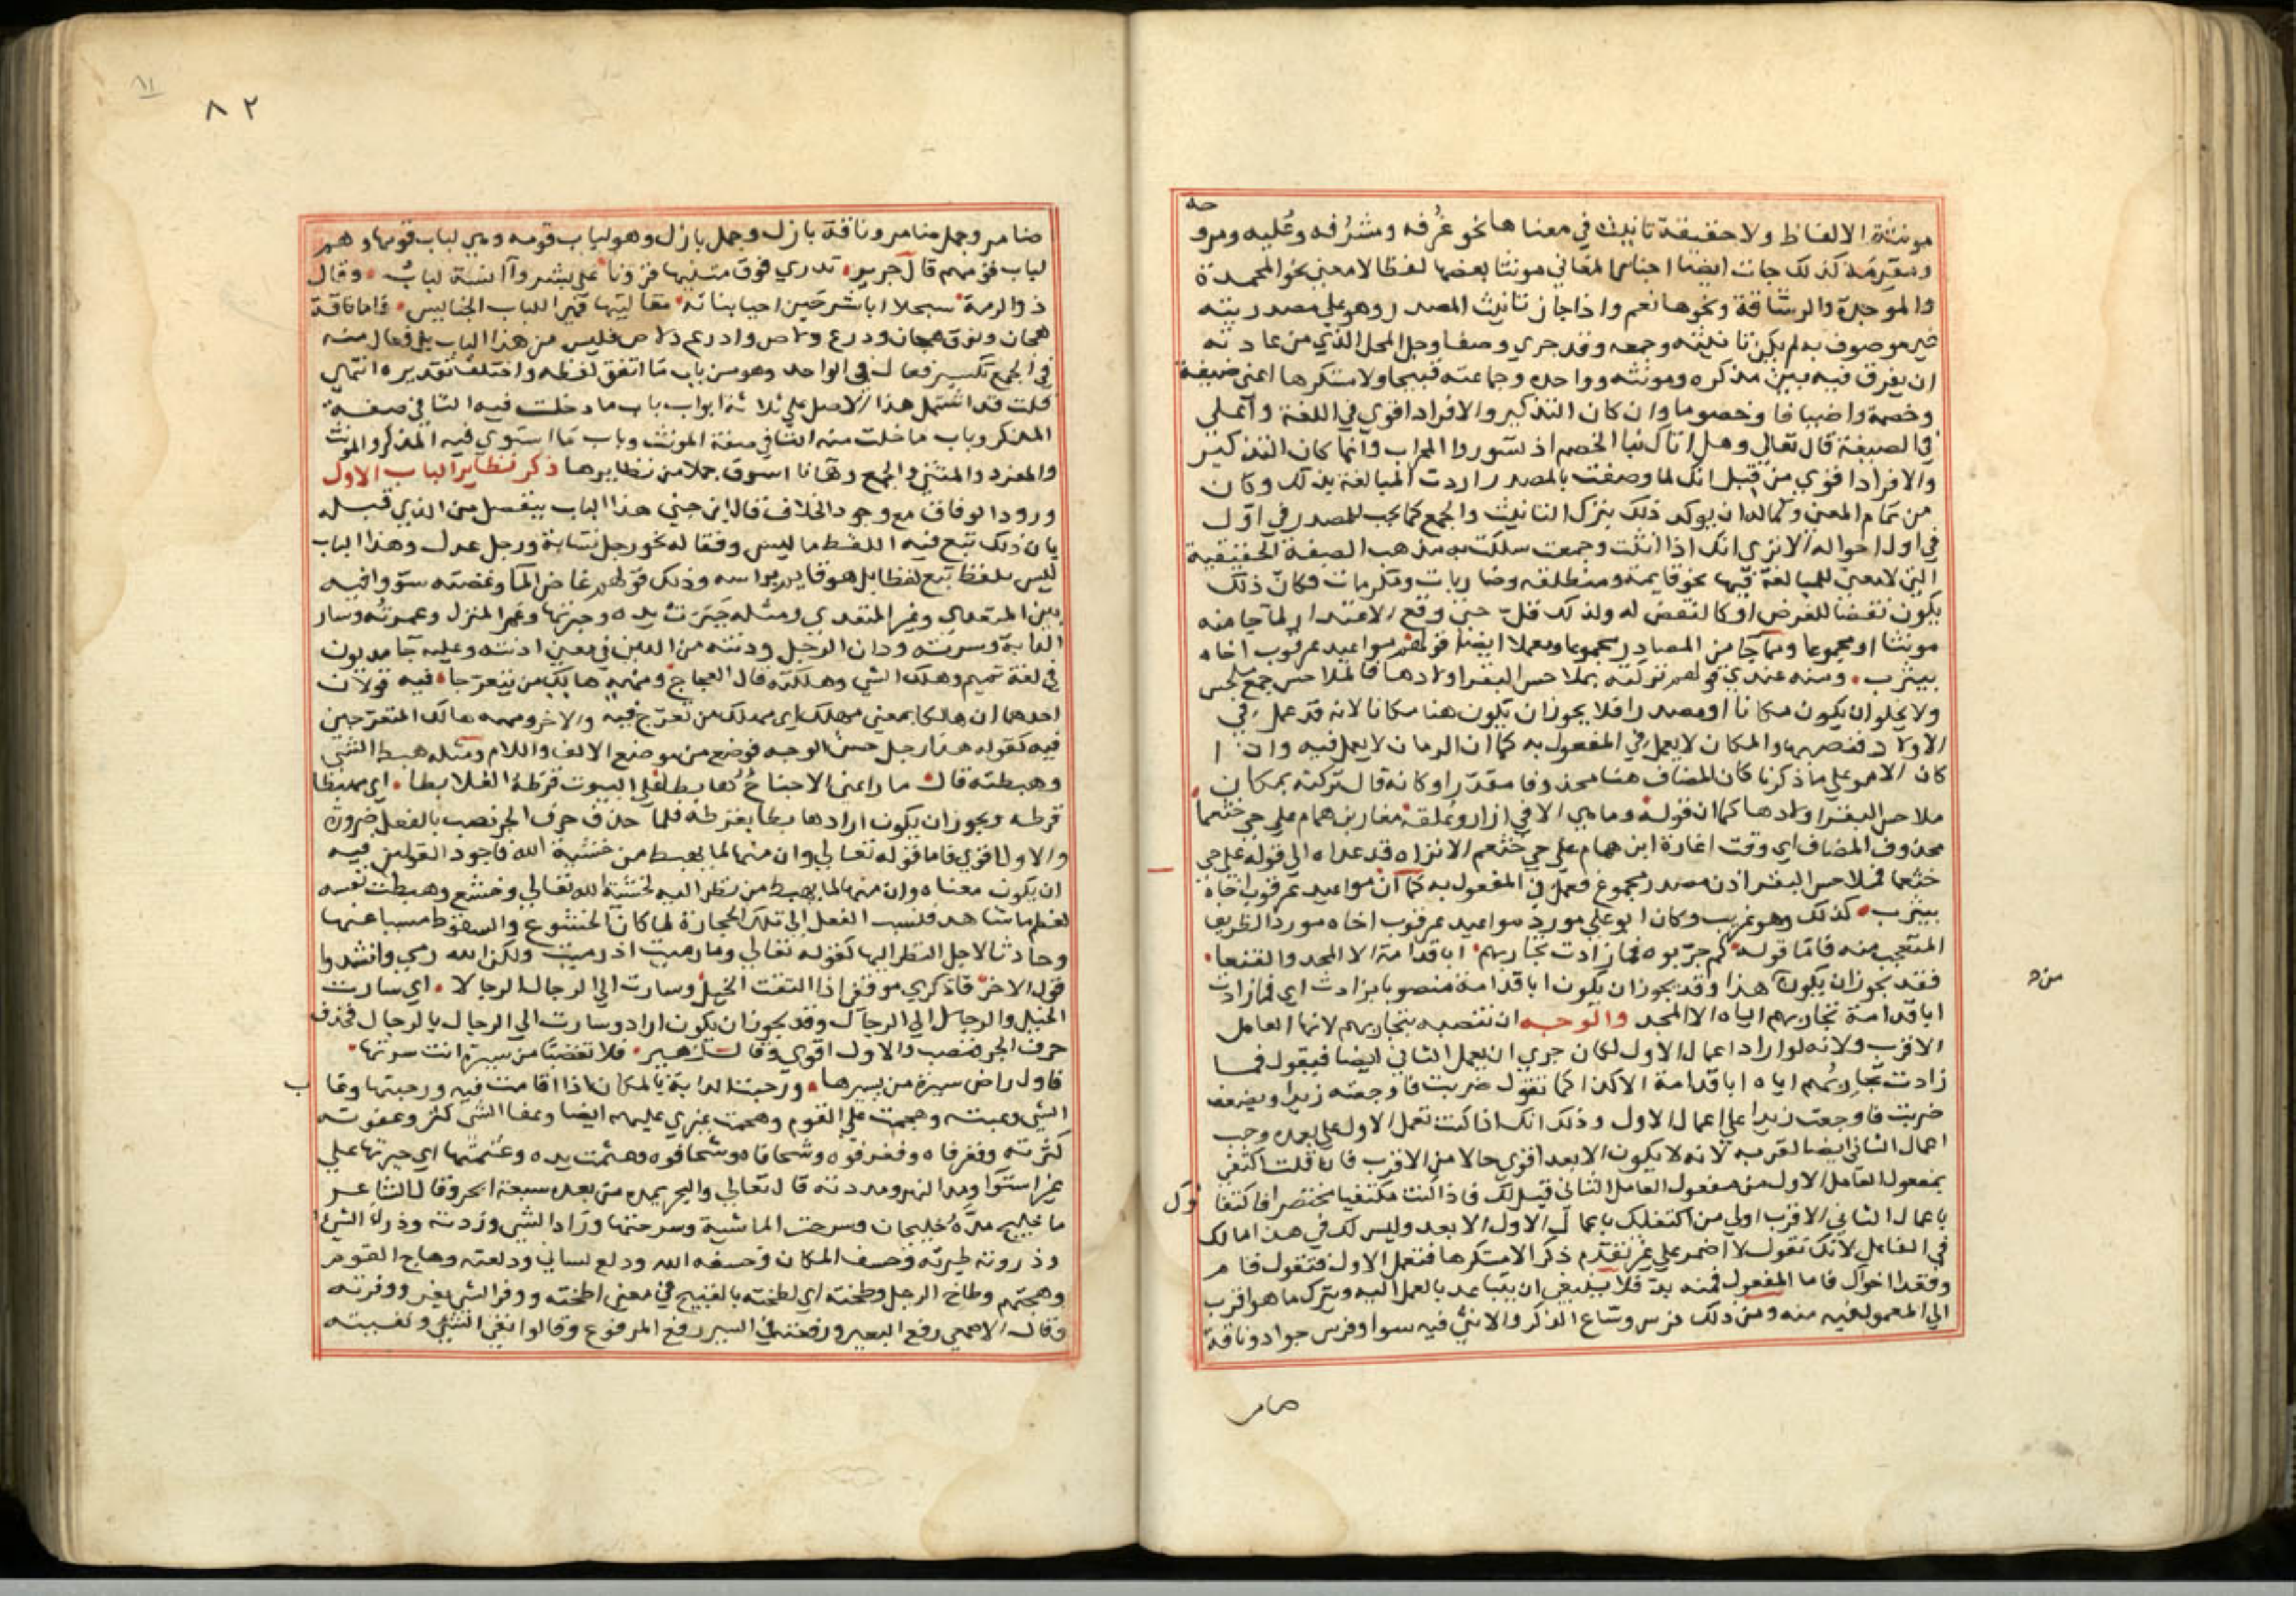 مونثة الالفاظ ولا حقيقة تانيث في معناها نحو غُرفه ومشرُفه وعُليه ومرو
حه
ومقرمَة كذلك جات ايضا اجناس المعاني مونثا بعضها لفظا لا معني نحو المحمدة
والموجدة والرشاقة ونحوها نعم واذا جاز تانيث المصدر وهو علي مصدريته
غير موصوف به لم يكن تانيثه وجمعه وقد جري وصفا وحل المحل الذي من عادته
ان يفرق فيه بين مذكره ومونثه وواحده وجماعته قبيحا ولا مستكرها اعني ضيفة
وخصمة واضيافا وخصوما وان كان التذكير والافراد اقوي في اللغة واعلي
في الصيغة قال تعالي وهل اتاك نبا الخصم اذ تسوروا المحراب وانما كان التذكير
والافراد اقوي من قبل انك لما وصفت بالمصدر اردت المبالغة بذلك وكان
من تمام المعني وكماله ان يوكد ذلك بترك التانيث والجمع كما يجب للمصدر في اول
في اول احواله الا تري انك اذا انثت وجمعت سلكت به مذهب الصفة الحقيقية
التي لا معني للمبالغة فيها نحو قايمة ومنطلقه وضاربات ومكرمات فكان ذلك
يكون نقضا للغرض او كالنقض له ولذلك قل حتي وقع الاعتذار لما جا منه
مونثا او مجموعا ومما جا من المصادر مجموعا ومعملا ايضا قولهم مواعيد عرقوب اخاه
بيثرب ومنه عندي قولهم تركته بملاحس البقر اولادها فالملاحس جمع ملحس
ولا يخلو ان يكون مكانا او مصدرا فلا يجوز ان يكون هنا مكانا لانه قد عمل في
الاولاد فنصبها والمكان لا يعمل في المفعول به كما ان الزمان لا يعمل فيه واذا
كان الامر علي ما ذكرنا كان المضاف هنا محذوفا مقدرا وكانه قال تركته بمكان
ملاحس البقر اولادها كما ان قوله وما هي الا في ازار وعلقة مغار بن همام علي حي خثعما
محذوف المضاف اي وقت اغارة ابن همام علي حي خثعم الا تراه قد عداه الي قوله علي حي
خثعما فملاحس البقر اذن مصدر مجموع فعمل في المفعول به كما ان مواعيد عرقوب اخاه
بيثرب كذلك وهو غريب وكان ابو علي مورد مواعيد عرقوب اخاه مورد الظريف
المتعجب منه فاما قوله كم جربوه فما زادت تجاربهم ابا قدامة الا المجد والفنعا
فقد يجوز ان يكون هذا وقد يجوز ان يكون ابا قدامة منصوبا بزادت اي فما زادت
من ه
ابا قدامة تجاربهم اياه الا المجد والوجه ان تنصبه بتجاربهم لانها العامل
الاقرب ولانه لو اراد اعمال الاول لكان حري ان يعمل الثاني ايضا فيقول فما
زادت تجاربهم اياه ابا قدامة الا كذا كما تقول ضربت فاوجعته زيدا ويضعف
ضربت فاوجعت زيدا علي اعمال الاول وذلك انك اذا كنت تعمل الاول علي بعده وجب
اعمال الثاني ايضا لقربه لانه لا يكون الابعد اقوي حالا من الاقرب فان قلت اكتفي
بمفعول العامل الاول من مفعول العامل الثاني قيل لك فاذا كنت مكتفيا مختصرا فاكتفا
وك
باعمال الثاني الاقرب اولي من اكتفايك باعمال الاول الابعد وليس لك في هذا مالك
في الفاعل لانك تقول لا اضمر علي غير تقدم ذكر الا مستكرها فتعمل الاول فتقول قام
وقعدا اخواك فاما المفعول فمنه بد فلا ينبغي ان يتباعد بالعمل اليه ويترك ما هو اقرب
الي المعمول فيه منه ومن ذلك فرس وساع الذكر والانثي فيه سوا وفرس جواد وناقة
ضامر
٨٢
٨١
ضامر وجمل ضامر وناقة بازل وجمل بازل وهو لباب قومه وهي لباب قومها وهم
لباب قومهم قال جرير تدري فوق متنيها قرونا علي بشر وآنسة لبابُ وقال
ذو الرمة سبحلا ابا شرخين احيا بناته مقاليتها فهي اللباب الحبايس فاما ناقة
هجان ونوق هجان ودرع دلاص وادرع دلاص فليس من هذا الباب بل فعال منه
في الجمع تكسير فعال في الواحد وهو من باب ما اتفق لفظه واختلف تقديره انتهي
قلت قد اشتمل هذا الاصل علي ثلاثة ابواب باب ما دخلت فيه التا في صفة
المذكر وباب ما خلت منه التا في صفة المونث وباب ما استوي فيه المذكر والمونث
والمفرد والمثني والجمع وها انا اسوق جملا من نظايرها ذكر نظاير الباب الاول
ورود الوفاق مع وجود الخلاف قال ابن جني هذا الباب ينفصل من الذي قبله
بان ذلك تبع فيه اللفظ ما ليس وفقا له نحو رجل نسابة ورجل عدل وهذا الباب
ليس بلفظ تبع لفظا بل هو قايم براسه وذلك قولهم غاض الما وغضته سووا فيه
بين المتعدي وغير المتعدي ومثله جَبَرَت يده وجبرتها وعمر المنزل وعمرته وسار
الدابة وسرته ودان الرجل ودنته من الدين في معني ادنته وعليه جا مديون
في لغة تميم وهلك الشي وهلكته قال العجاج ومهمه هالك من تعرجا فيه قولان
احدهما ان هالكا بمعني مهلك اي مهلك من تعرج فيه والاخر ومهمه هالك المتعرجين
فيه كقوله هذا رجل حسن الوجه فوضع من موضع الالف واللام ومثله هبط الشي
وهبطته قال ما راعني الا جناح هابطا علي البيوت قوطه العلابطا اي مهبطا
قوطه ويجوز ان يكون اراد هابطا بقوطه فلما حذف حرف الجر نصب بالفعل ضرورة
والاول اقوي فاما قوله تعالي وان منها لما يهبط من خشية الله فاجود القولين فيه
ان يكون معناه وان منها لما يهبط من نظر اليه لخشية الله تعالي وخشع وهبطت نفسه
لعظم ما شاهد فنسب الفعل الي تلك الحجارة لما كان الخشوع والسقوط مسببا عنها
وحادثا لاجل النظر اليها كقوله تعالي وما رميت اذ رميت ولكن الله رمي وانشدوا
قول الاخر فاذكري موقفي اذا التقت الخيل وسارت الي الرجال الرجالا اي سارت
الخيل والرجال الي الرجال وقد يجوز ان يكون اراد وسارت الي الرجال بالرجال فحذف
حرف الجر فنصب والاول اقوي وقال زهير فلا تغضبا من سيرة انت سرتها
فاول راض سيرة من يسيرها ورجنت الدابة بالمكان اذا اقامت فيه ورجنتها وعا
ب
الشي وعبته وهجمت علي القوم وهجمت غيري عليهم ايضا وعفا الشي كثر وعفوته
كثرته وفغر فاه وفغر فوه وشحا فاه وشحا فوه وعثمت يده وعثمتها اي جبرتها علي
غير استوا ومد النهر ومددته قال تعالي والبحر يمده من بعده سبعة ابحر وقال الشاعر
ما خليج مدّه خليجان وسرحت الماشية وسرحتها وزاد الشي وزدته وذرا الشي
وذروته طيرته وخسف المكان وخسفه الله ودلع لساني ودلعته وهاج القوم
وهجتهم وطاخ الرجل وطخته اي لطخته بالقبيح في معني اطخته ووفر الشي يفر ووفرته
وقال الاصمعي رفع البعير ورفعته في السير رفع المرفوع وقالوا نفي الشي ونفيته